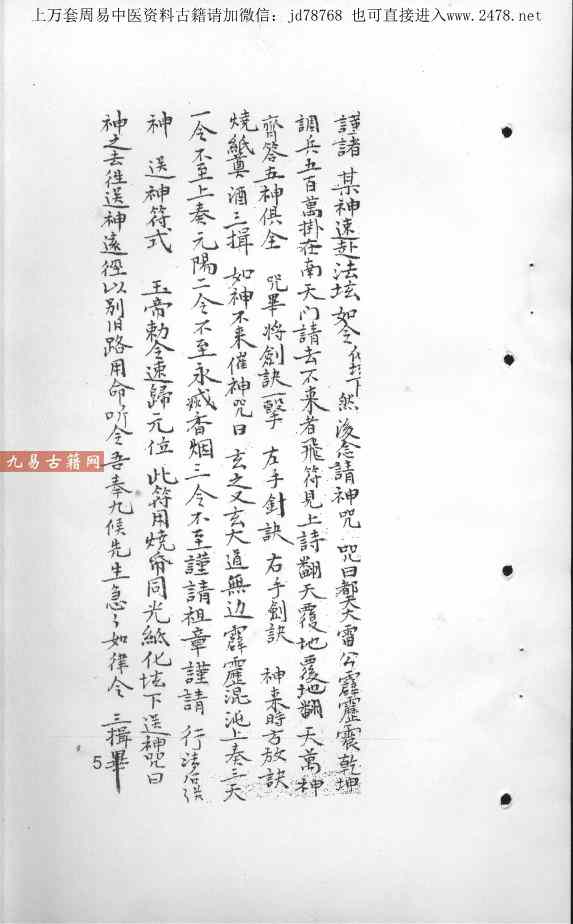 上万套周易中医资料古籍请加微信：jd78768 也可直接进入www.2478.net
謹請 某神速赴法坛如令 然後念請神咒 咒曰都天大雷公霹靂震乾坤
調兵五百萬掛在南天门請去不来者飛符見上詩翻天覆地覆地翻天萬神
齊答五神俱全 咒畢将劍訣一擊 左手針訣 右手劍訣 神来時方放訣
燒紙奠酒三揖 如神不来催神咒曰 玄之又玄大道無边霹靂混池上奏三天
一令不至上奏元陽二令不至永滅香烟三令不至謹請祖章謹請 行法
神 送神符式 玉帝勅令速歸元位 此符用燒帋同光紙化坛下送神咒曰
神之去徃送神遠徑以别旧路用命听令吾奉九候先生急々如律令 三揖畢
九易古籍网
5